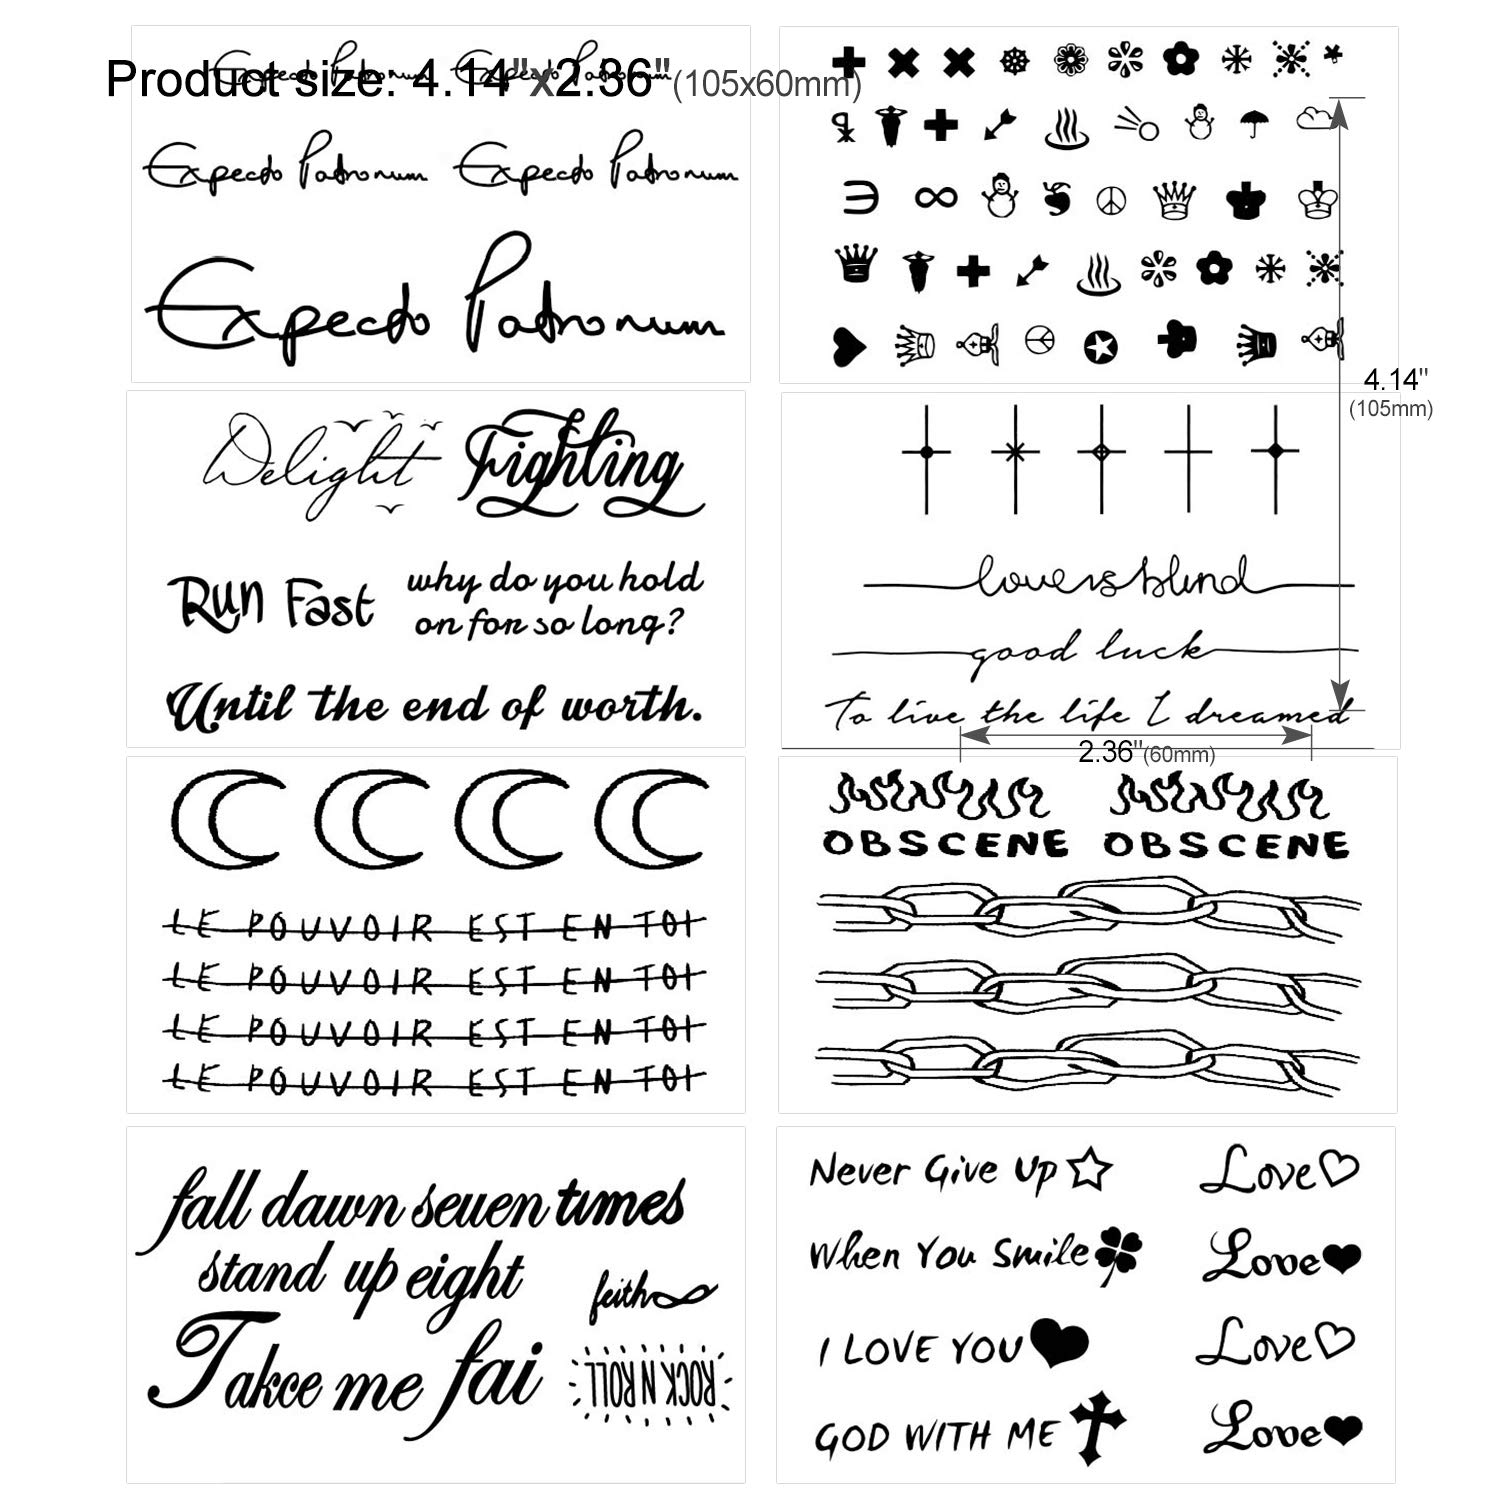 Expecto Patronum Expecto Patronum
Product size: 4.14"x2.36"(105x60mm)
Expecto Patronum Expecto Patronum
Expecto Patronum
4.14"
(105mm)
Delight Fighting
Run Fast
why do you hold
on for so long?
Until the end of worth.
love is blind
good luck
To live the life I dreamed
2.36"(60mm)
LE POUVOIR EST EN TOI
LE POUVOIR EST EN TOI
LE POUVOIR EST EN TOI
LE POUVOIR EST EN TOI
OBSCENE OBSCENE
fall dawn seuen tımes
stand up eight
feith
Takce me fai
ROCK N ROLL
Never Give Up Love
When You Smile Love
I LOVE YOU Love
GOD WITH ME Love